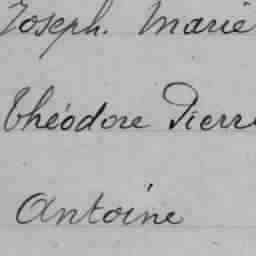 Joseph. Marie
Théodore Pierr
Antoine